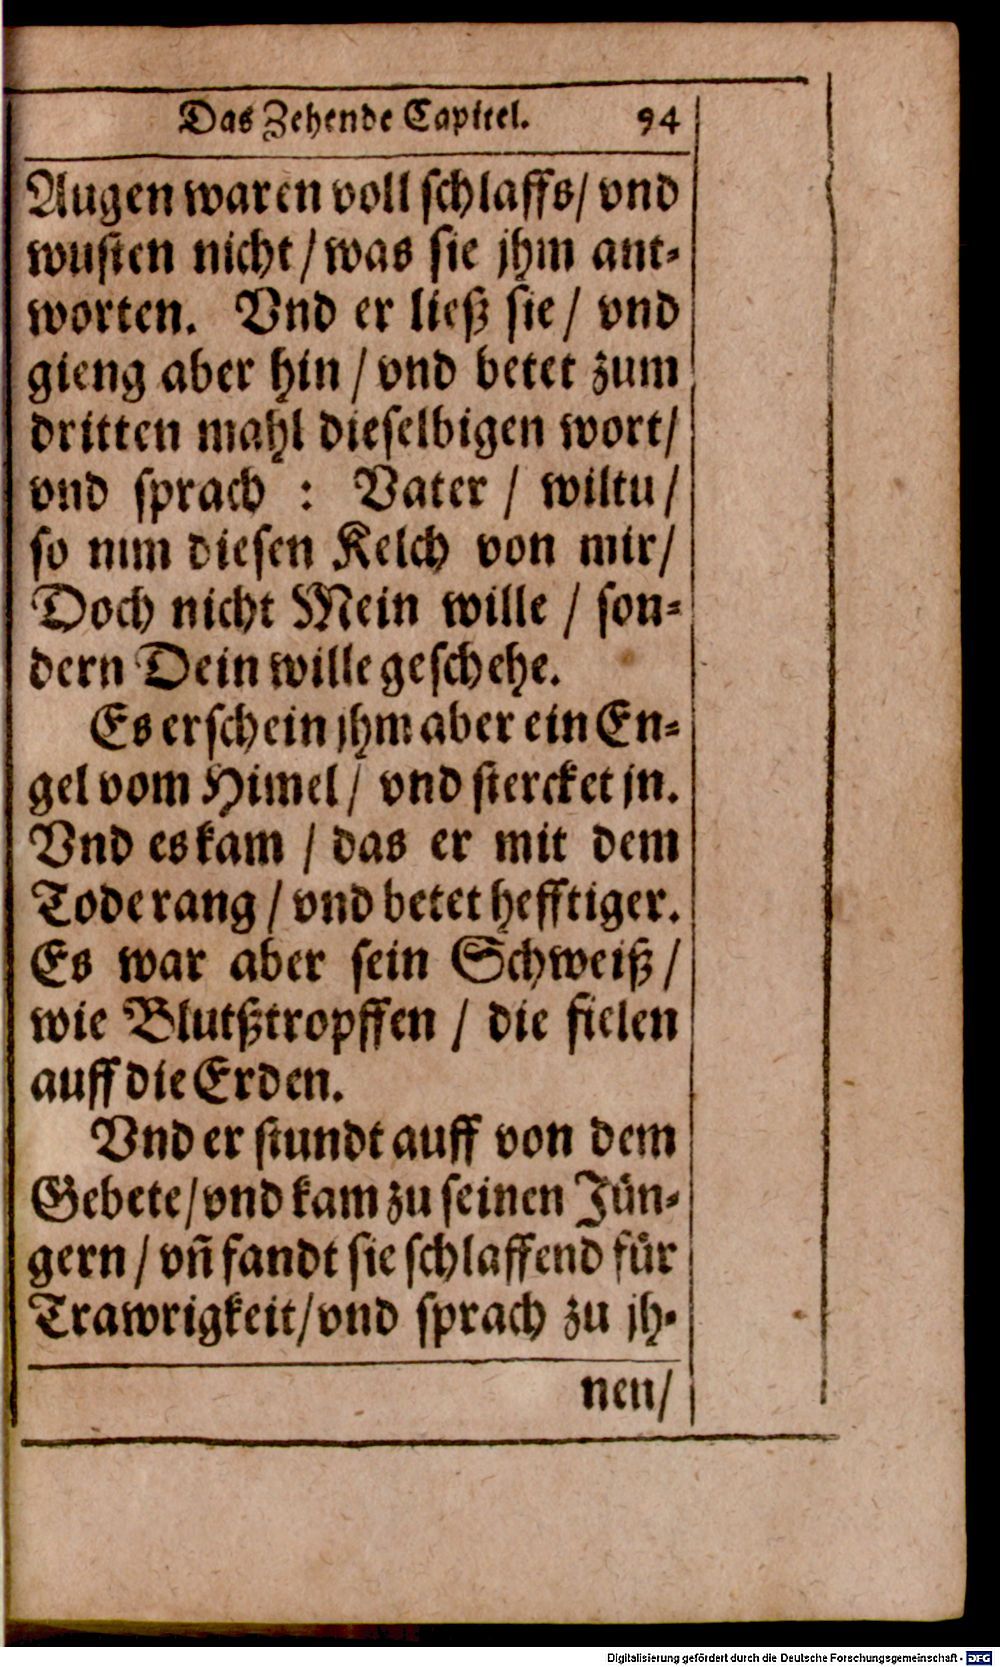 Das Zehende Capitel. 94
Augen waren voll schlaffs/ vnd
wusten nicht / was sie jhm ant-
worten. Vnd er ließ sie / vnd
gieng aber hin / vnd betet zum
dritten mahl dieselbigen wort/
vnd sprach : Vater / wiltu /
so nim diesen Kelch von mir/
Doch nicht Mein wille / son-
dern Dein wille geschehe.
Es erschein jhm aber ein En-
gel vom Himel / vnd stercket jn.
Vnd es kam / das er mit dem
Tode rang / vnd betet hefftiger.
Es war aber sein Schweiß /
wie Blutßtropffen / die fielen
auff die Erden.
Vnd er stundt auff von dem
Gebete/ vnd kam zu seinen Jün-
gern / vñ fandt sie schlaffend für
Trawrigkeit/ vnd sprach zu jh-
nen/
Digitalisierung gefördert durch die Deutsche Forschungsgemeinschaft - DFG